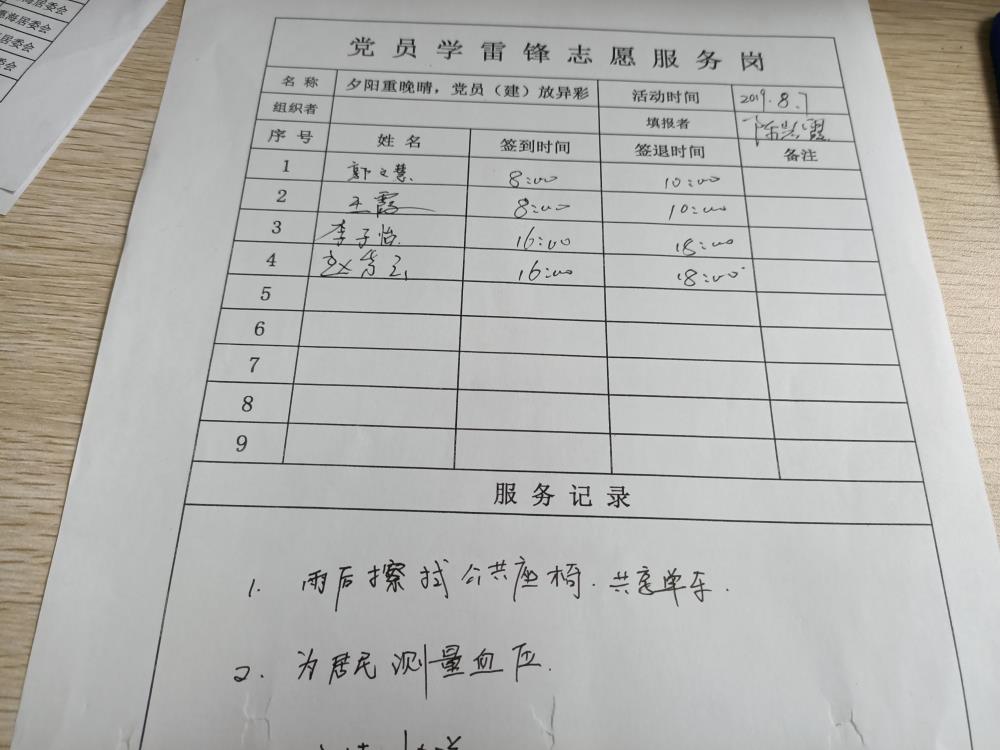 海居委会
惠海居委会
居委会
委会
党员学雷锋志愿服务岗
名称 夕阳重晚晴，党员（建）放异彩 活动时间 2019.8.7
组织者 填报者
序号 姓名 签到时间 签退时间 备注
1 郭文慧 8:00 10:00
2 王霞 8:00 10:00
3 李子怡 16:00 18:00
4 16:00 18:00
5
6
7
8
9
服务记录
1. 雨后擦拭公共座椅.共享单车.
2. 为居民测量血压.